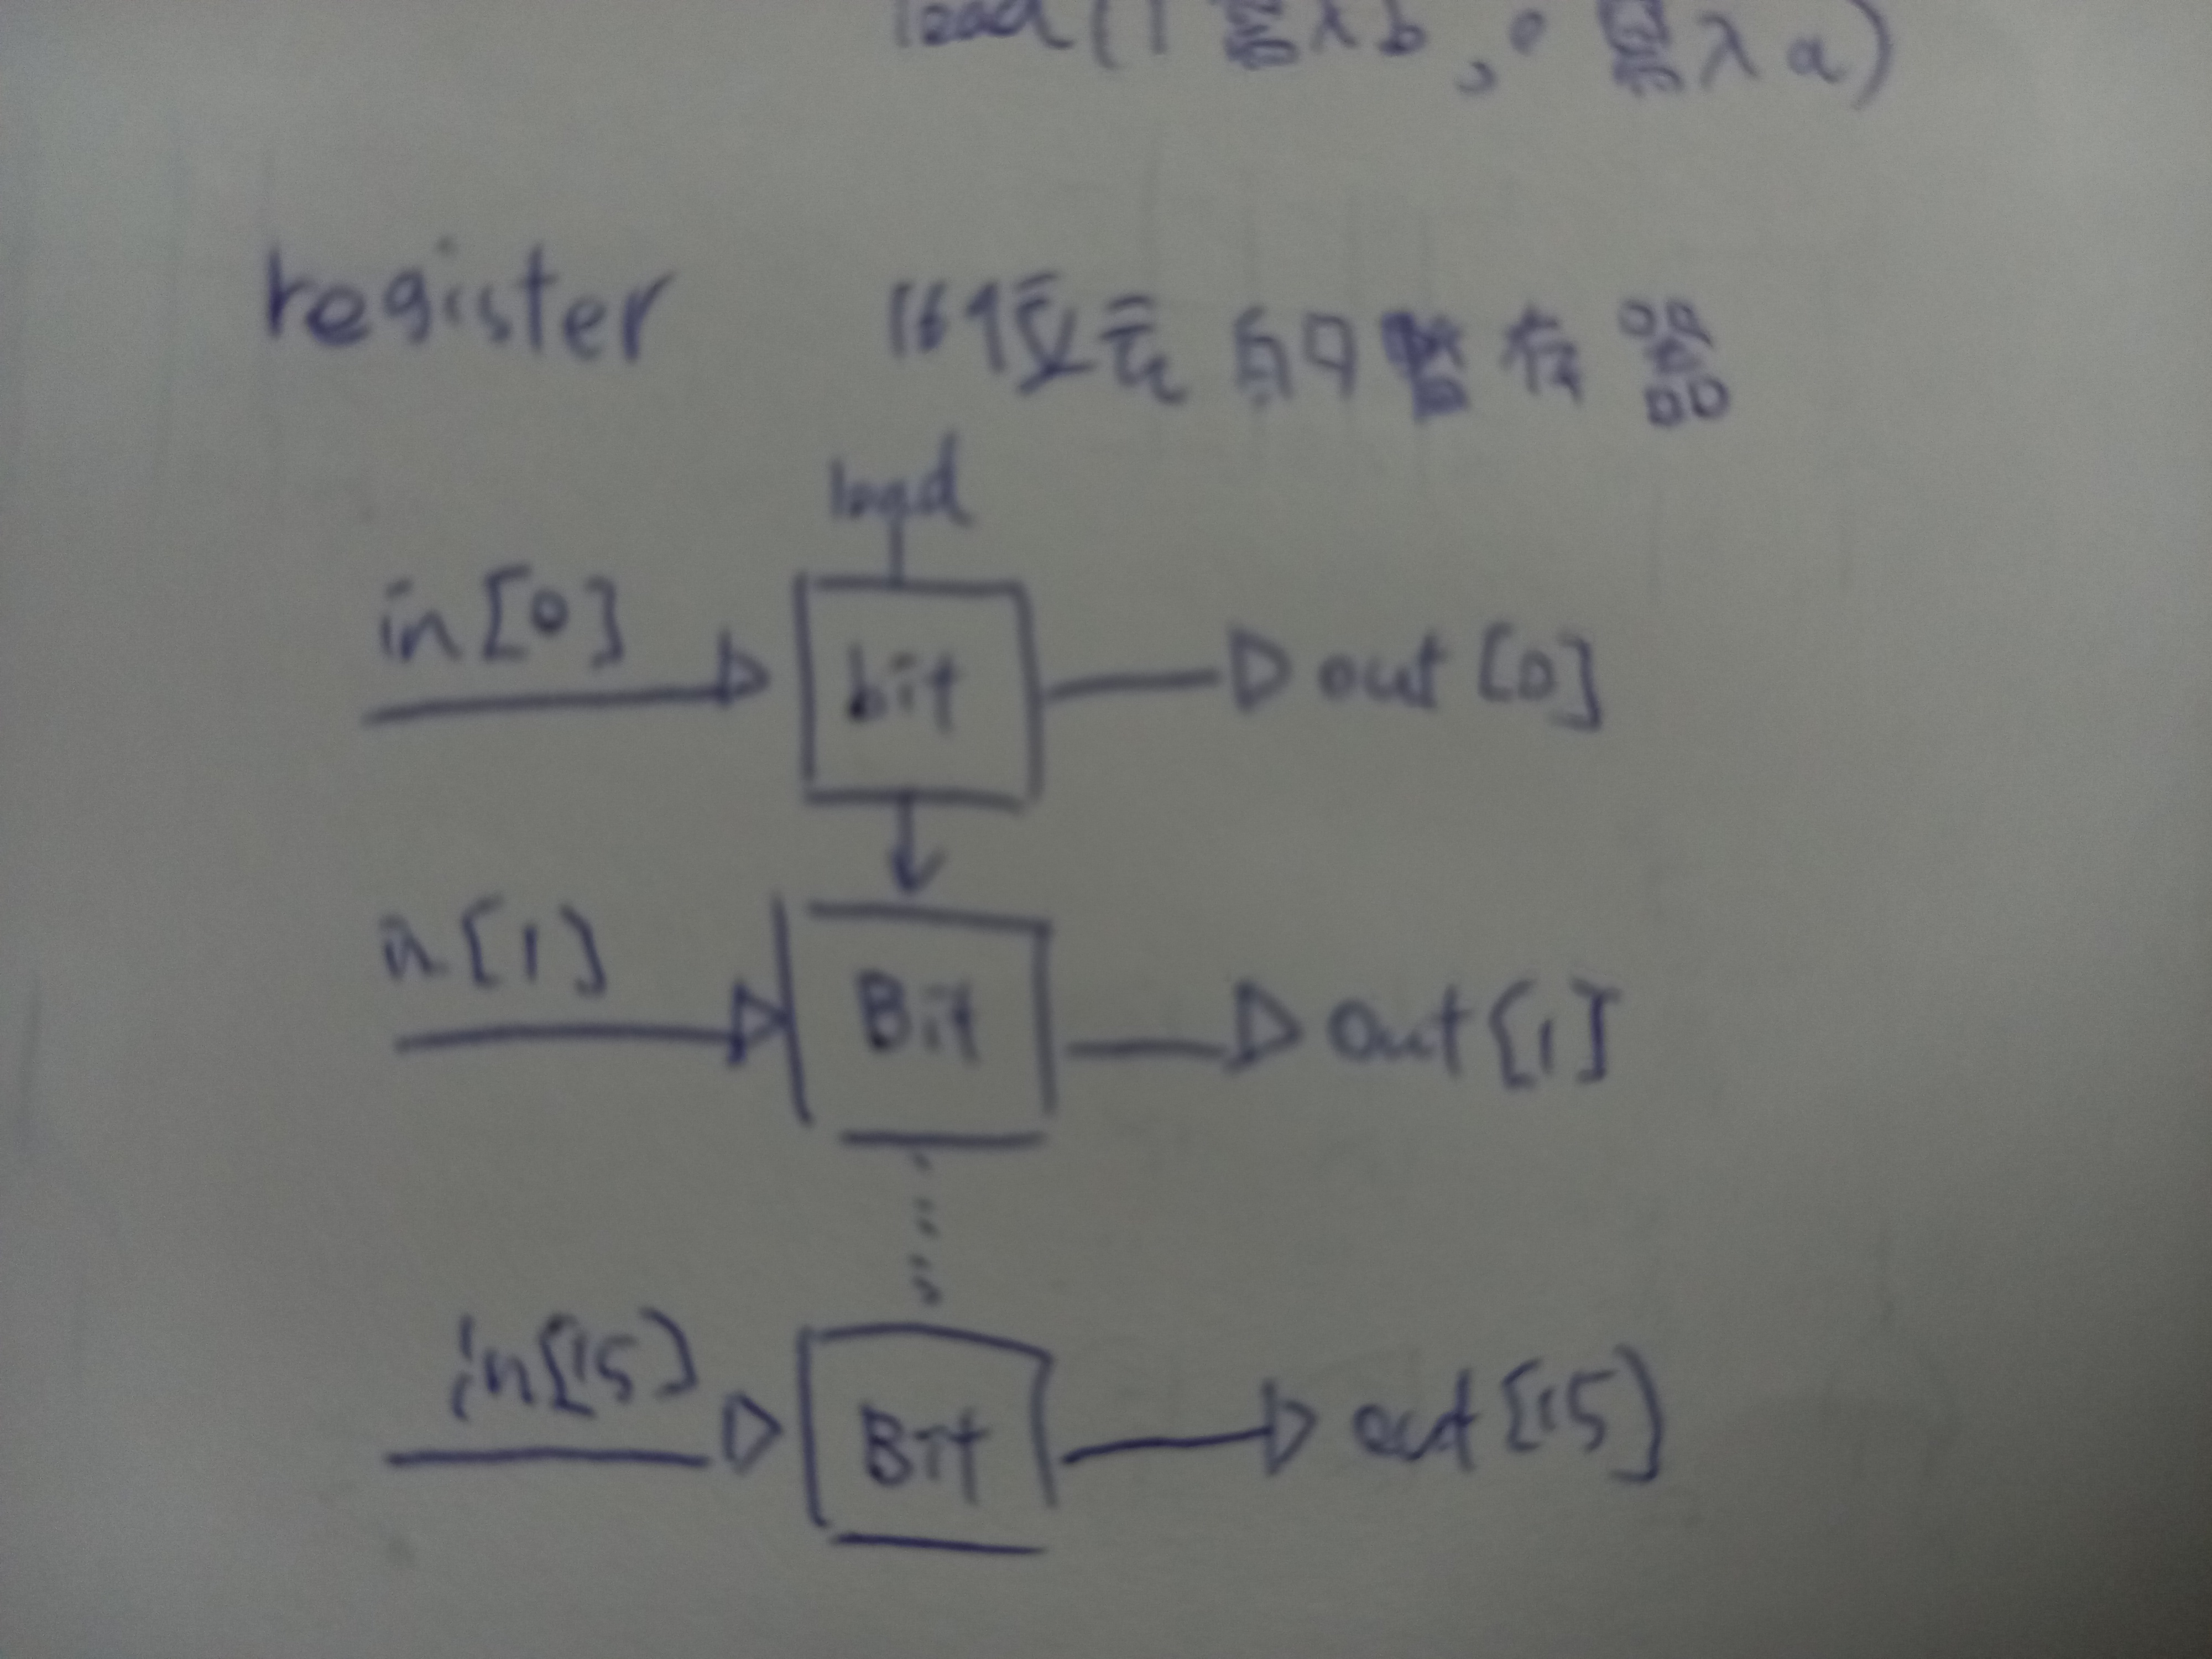 load(1 寫入b, 0 寫入a)
register 16位元的暫存器
load
in[0] bit out[0]
in[1] Bit out[1]
in[15] Bit out[15]